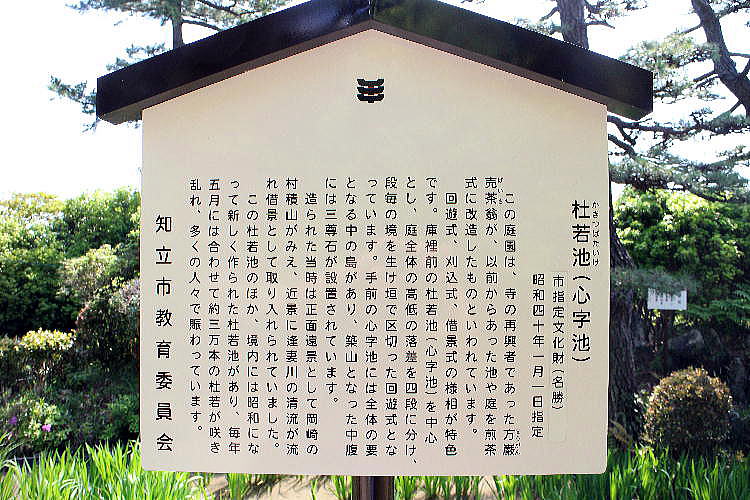 かきつばたいけ
杜若池(心字池)
市指定文化財(名勝)
昭和四十年一月一日指定
この庭園は、寺の再興者であった方巌
売茶翁が、以前からあった池や庭を煎茶
式に改造したものといわれています。
回遊式、刈込式、借景式の様相が特色
です。庫裡前の杜若池(心字池)を中心
とし、庭全体の高低の落差を四段に分け、
段毎の境を生け垣で区切った回遊式とな
っています。手前の心字池には全体の要
となる中の島があり、築山となった中腹
には三尊石が設置されています。
造られた当時は正面遠景として岡崎の
村積山がみえ、近景に逢妻川の清流が流
れ借景として取り入れられていました。
この杜若池のほか、境内には昭和にな
って新しく作られた杜若池があり、毎年
五月には合わせて約三万本の杜若が咲き
乱れ、多くの人々で賑わっています。
知立市教育委員会